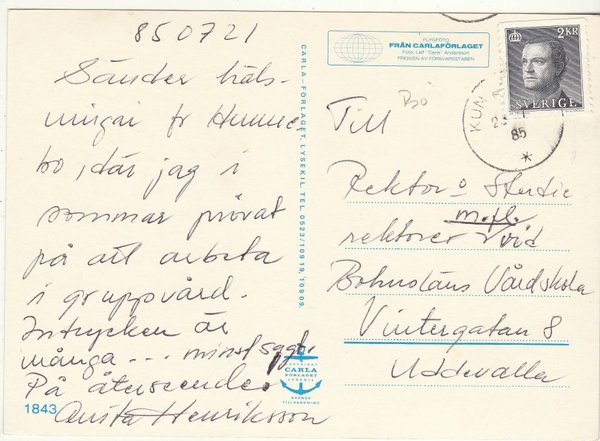 850721
Sänder häls-
ningar fr Hunne
bo, där jag i
sommar prövat
på att arbeta
i gruppvård.
Intrycken är
många ... minst sagt.
På återseende
Anita Henriksson
1843
CARLA-FÖRLAGET, LYSEKIL, TEL. 0523/10919, 10909.
CARLA
FÖRLAGET
LYSEKIL
SVENSK
TILLVERKNING
FLYGFOTO
FRÅN CARLAFÖRLAGET
Foto: Leif "Carla" Andersson
FRIGIVEN AV FÖRSVARSSTABEN
2 KR
SVERIGE
KUN
85
Till
Rektor o Studie
m.fl.
rektorer vid
Bohusläns Vårdskola
Vintergatan 8
Uddevalla